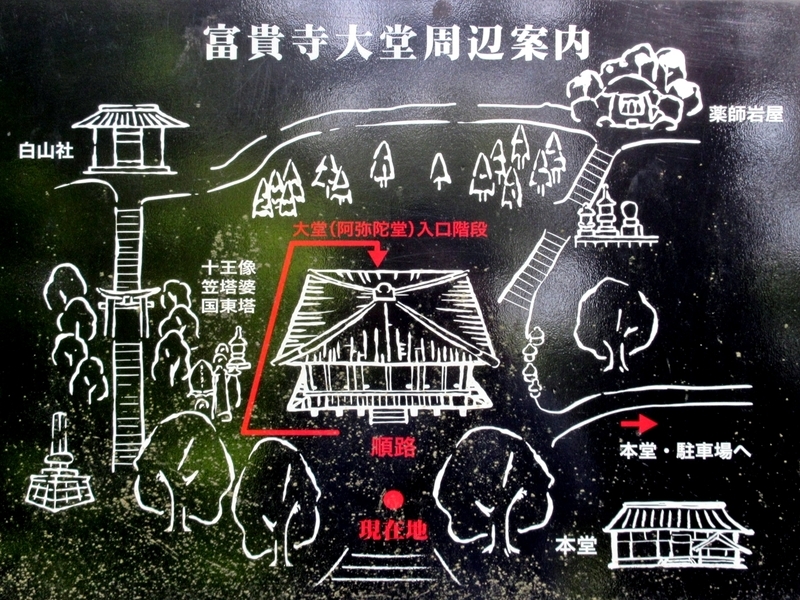 富貴寺大堂周辺案内
薬師岩屋
白山社
大堂(阿弥陀堂)入口階段
十王像
笠塔婆
国東塔
順路
本堂・駐車場へ
現在地
本堂